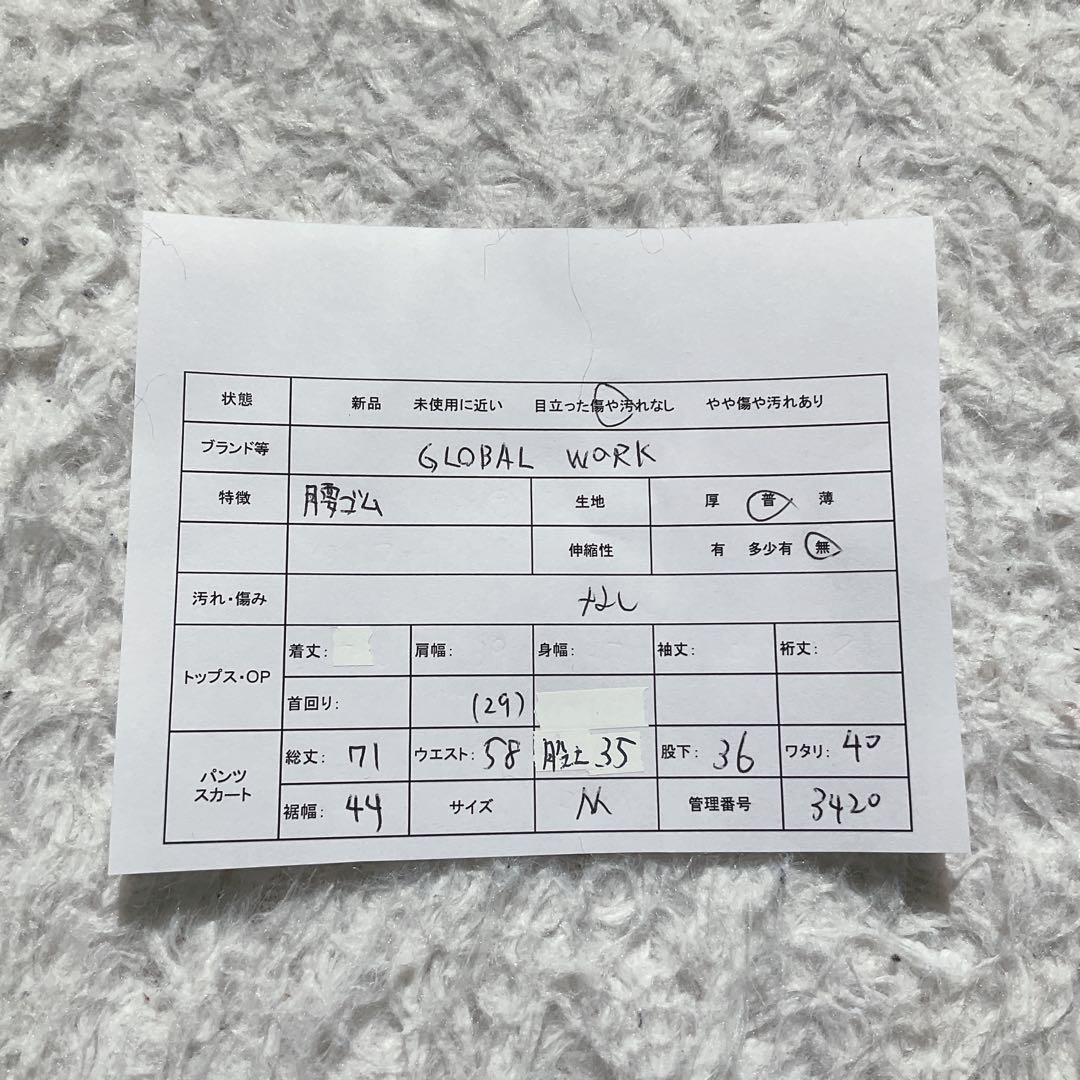 状態 新品 未使用に近い 目立った傷や汚れなし やや傷や汚れあり
ブランド等 GLOBAL WORK
特徴 腰ゴム 生地 厚 普 薄
伸縮性 有 多少有 無
汚れ・傷み なし
トップス・OP
着丈: 肩幅: 身幅: 袖丈: 裄丈:
首回り: (29)
パンツ
スカート
総丈: 71 ウエスト: 58 股上 35 股下: 36 ワタリ: 40
裾幅: 44 サイズ M 管理番号 3420